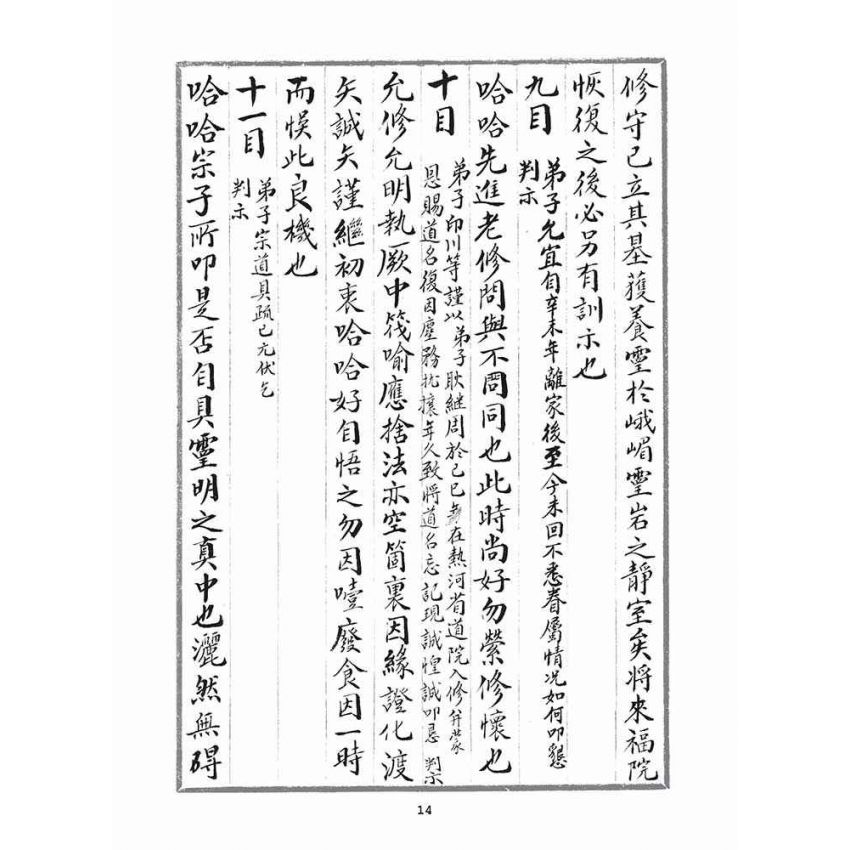 修守已立其基獲養靈於峨嵋靈岩之靜室矣將來福院
恢復之後必另有訓示也
九目
弟子允宜自辛未年離家後至今未回不悉眷屬情况如何叩懇
判示
哈哈先進老修問與不問同也此時尚好勿縈修懷也
十目
弟子印川等謹以 弟子耿繼周於己巳年在熱河省道院入修幷蒙
恩賜道名復因塵務扰攘年久致將道名忘記現誠惶誠叩恳 判示
允修允明執厥中筏喻應捨法亦空箇裏因緣證化渡
矢誠矢謹繼初衷哈哈好自悟之勿因噎廢食因一時
而悞此良機也
十一目
弟子宗道具疏已尤伏乞
判示
哈哈宗子所叩是否自具靈明之真中也灑然無碍
14